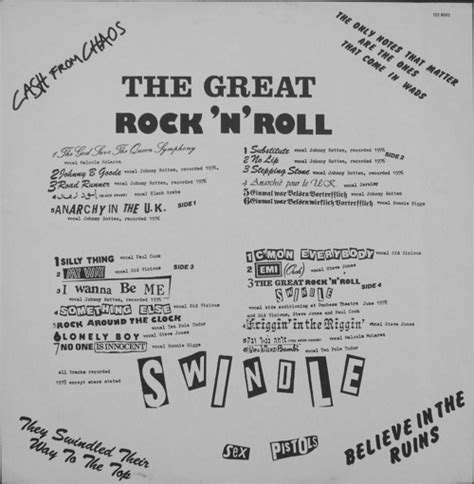 CASH FROM CHAOS
THE ONLY NOTES THAT MATTER
ARE THE ONES
THAT COME IN WADS
THE GREAT
ROCK 'N' ROLL
1 The God Save The Queen Symphony
vocal Malcolm McLaren
2 Johnny B Goode vocal Johnny Rotten, recorded 1976
3 Road Runner vocal Johnny Rotten, recorded 1976
vocal Black Arabs
5 ANARCHY IN THE U.K. SIDE 1
1 Substitute vocal Johnny Rotten, recorded 1976
2 No Lip vocal Johnny Rotten, recorded 1976 SIDE 2
3 Stepping Stone vocal Johnny Rotten, recorded 1976
4 Anarchie pour le U.K.
5 Einmal war Belsen Vortrefflich
6 Einmal war Belsen Wirklich Vortrefflich vocal Ronnie Biggs
1 SILLY THING vocal Paul Cook
2 MY WAY vocal Sid Vicious SIDE 3
3 I wanna Be ME
vocal Johnny Rotten, recorded 1976
4 SOMETHING ELSE vocal Sid Vicious
5 ROCK AROUND THE CLOCK
vocal Ten Pole Tudor
6 LONELY BOY vocal Steve Jones
7 NO ONE IS INNOCENT vocal Ronnie Biggs
all tracks recorded
1978 except where stated
1 C'MON EVERYBODY
vocal Sid Vicious
2 EMI (Orch) vocal Steve Jones
3 THE GREAT ROCK 'N' ROLL SIDE 4
SWINDLE
vocal kids auditioning at Duchess Theatre June 1978
Steve Jones and Paul Cook
Friggin' in the Riggin' vocal Steve Jones
vocal Malcolm McLaren
vocal Ten Pole Tudor
SWINDLE
They Swindled Their
Way To The Top
SEX PISTOLS
BELIEVE IN THE
RUINS